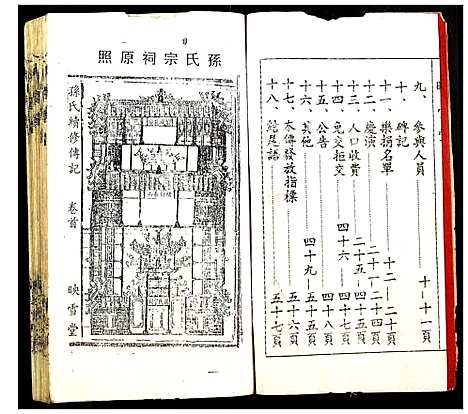 九、參與人員 十—十一頁
十、碑記
十一、樂捐名單 十二—二十頁
十二、慶演 二十一—二十四頁
十三、人口收費 二十五—四十五頁
十四、免交拒交 四十六—四十七頁
十五、公告 四十八頁
十六、其他 四十九—五十五頁
十七、本傳發放指標 五十六頁
十八、結尾語 五十七頁
孫氏宗祠原照
孫氏續修傳記 卷首 映雪堂